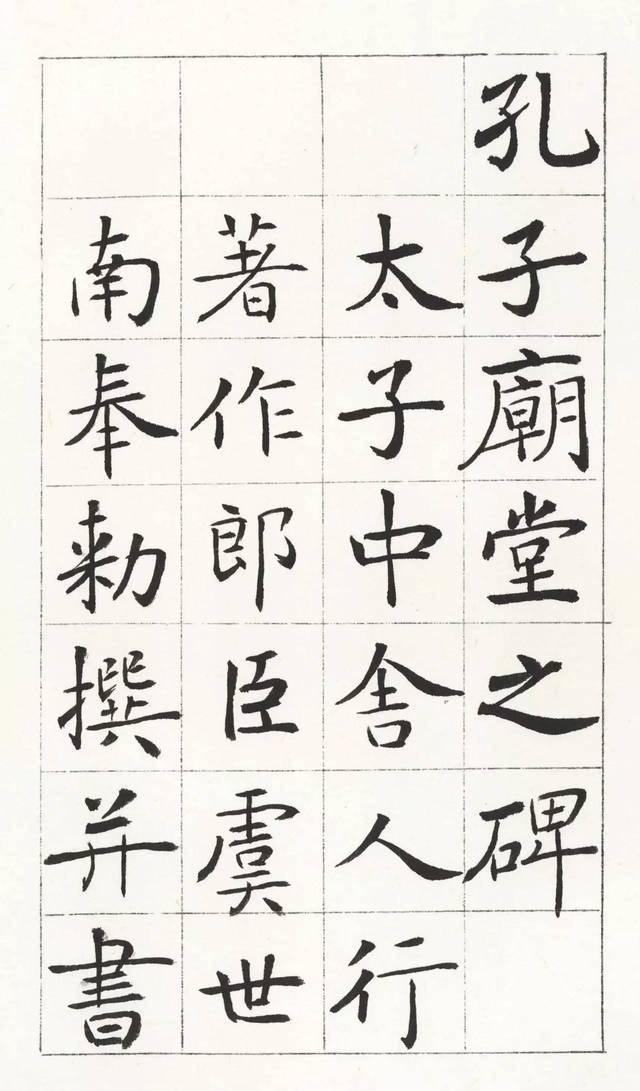 孔子廟堂之碑
太子中舎人行
著作郎臣虞世
南奉勑撰并書